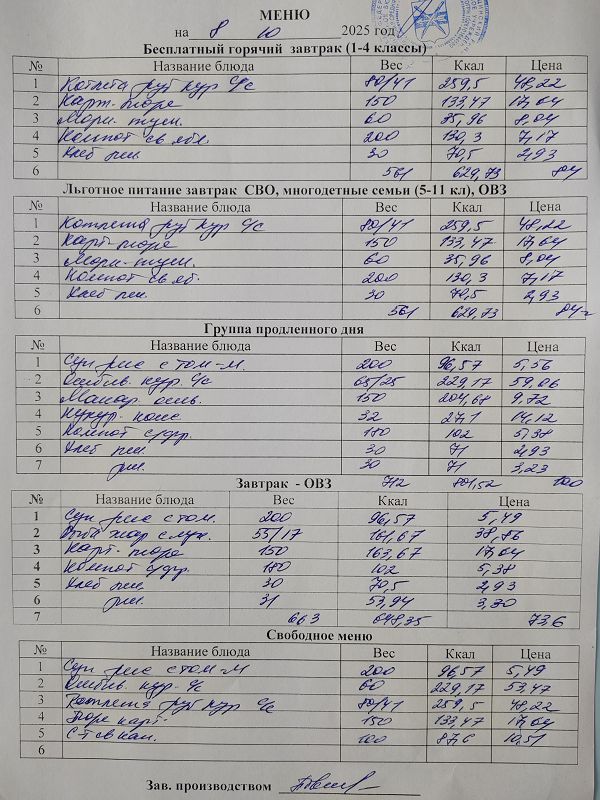 МЕНЮ
на 8 10 2025 год
Бесплатный горячий завтрак (1-4 классы)
№ Название блюда Вес Ккал Цена
1 Котлета руб кур с/с 80/41 259,5 48,22
2 Карт. пюре 150 133,47 17,64
3 Морк. туш. 60 35,96 8,04
4 Компот св ябл. 200 130,3 7,17
5 Хлеб пш. 30 70,5 2,93
6 561 629,73 84
Льготное питание завтрак СВО, многодетные семьи (5-11 кл), ОВЗ
№ Название блюда Вес Ккал Цена
1 Котлета руб кур с/с 80/41 259,5 48,22
2 Карт пюре 150 133,47 17,64
3 Морк. туш. 60 35,96 8,04
4 Компот св яб. 200 130,3 7,17
5 Хлеб пш. 30 70,5 2,93
6 561 629,73 84
Группа продленного дня
№ Название блюда Вес Ккал Цена
1 Суп рис с том-м. 200 96,57 5,56
2 кур. с/с 65/25 229,17 59,06
3 Макар. отв. 150 204,68 9,72
4 Кукур. конс 32 27,1 14,12
5 Компот с/фр. 180 102 5,38
6 Хлеб пш. 30 71 2,93
7 рж. 30 71 3,23
712 801,52 100
Завтрак - ОВЗ
№ Название блюда Вес Ккал Цена
1 Суп рис с том. 200 96,57 5,49
2 Рыба жар с лук. 55/17 161,67 38,86
3 Карт. пюре 150 163,67 17,64
4 Компот с/фр. 180 102 5,38
5 Хлеб пш. 30 70,5 2,93
6 рж. 31 53,94 3,30
7 663 648,35 73,6
Свободное меню
№ Название блюда Вес Ккал Цена
1 Суп рис с том-м 200 96,57 5,49
2 кур. с/с 60 229,17 53,47
3 Котлета руб кур с/с 80/41 259,5 48,22
4 Пюре карт. 150 133,47 17,64
5 100 87,6 10,51
6
Зав. производством